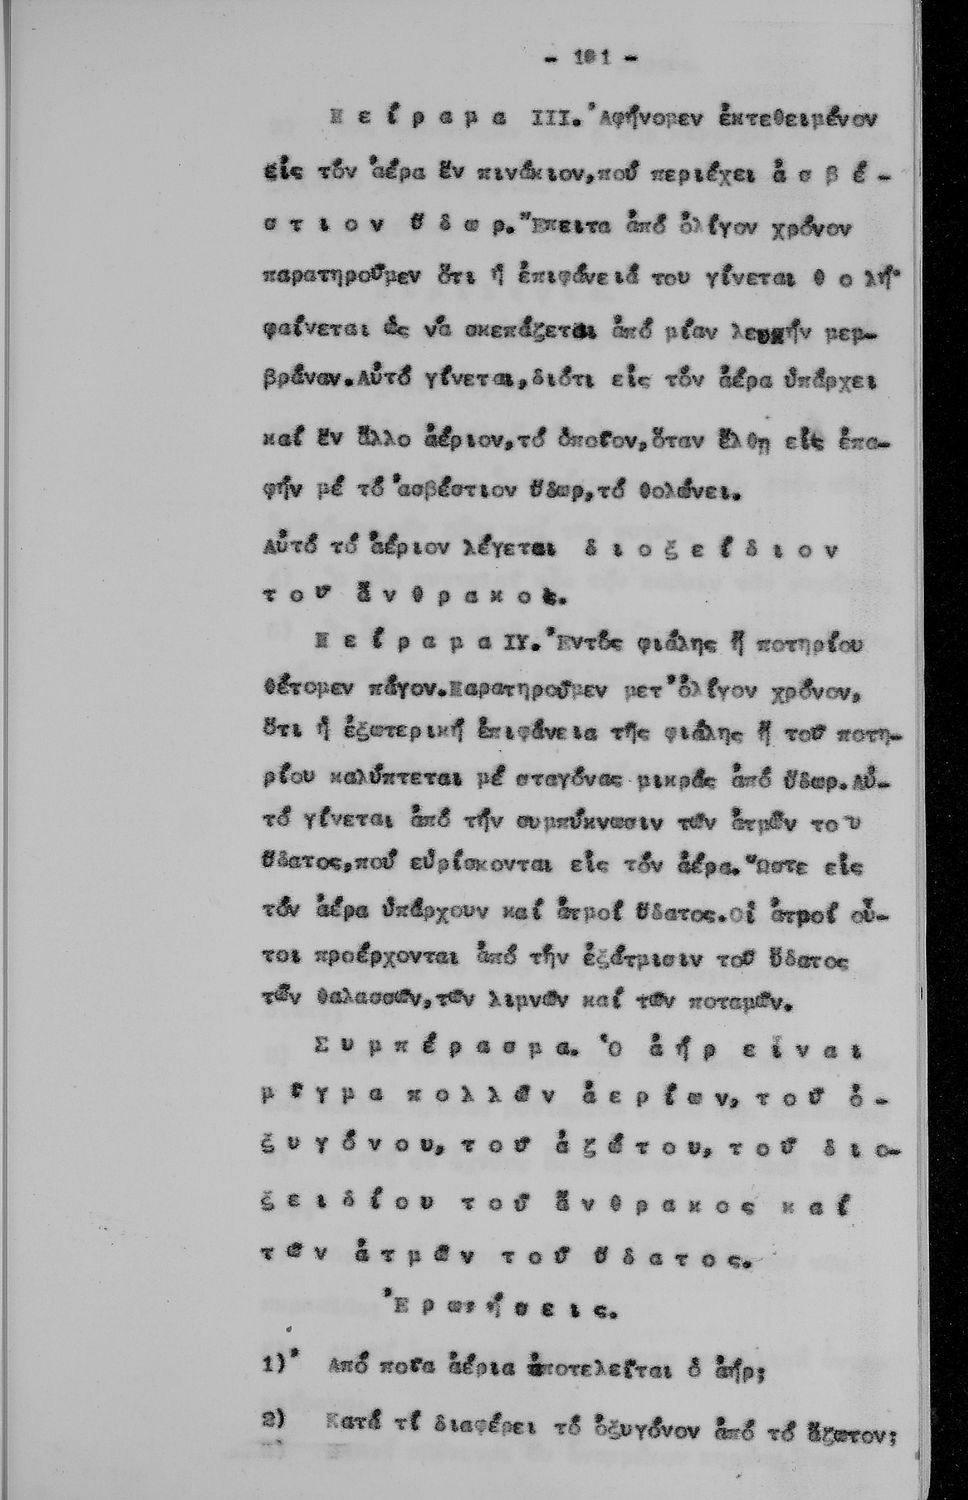 - 101 -
Π ε ί ρ α μ α III. Ἀφήνομεν ἐκτεθειμένον
εἰς τόν ἀέρα ἕν πινάκιον, πού περιέχει ἀ σ β έ -
σ τ ι ο ν ὕ δ ω ρ. Ἔπειτα ἀπό ὀλίγον χρόνον
παρατηροῦμεν ὅτι ἡ ἐπιφάνειά του γίνεται θ ο λ ή·
φαίνεται ὡς νά σκεπάζεται ἀπό μίαν λευκήν μεμ-
βράναν. Αὐτό γίνεται, διότι εἰς τόν ἀέρα ὑπάρχει
καί ἕν ἄλλο ἀέριον, τό ὁποῖον, ὅταν ἔλθῃ εἰς ἐπα-
φήν μέ τό ἀσβέστιον ὕδωρ, τό θολώνει.
Αὐτό τό ἀέριον λέγεται δ ι ο ξ ε ί δ ι ο ν
τ ο ῦ ἄ ν θ ρ α κ ο ς.
Π ε ί ρ α μ α ΙΥ. Ἐντός φιάλης ἤ ποτηρίου
θέτομεν πάγον. Παρατηροῦμεν μετ' ὀλίγον χρόνον,
ὅτι ἡ ἐξωτερική ἐπιφάνεια τῆς φιάλης ἤ τοῦ ποτη-
ρίου καλύπτεται μέ σταγόνας μικράς ἀπό ὕδωρ. Αὐ-
τό γίνεται ἀπό τήν συμπύκνωσιν τῶν ἀτμῶν τοῦ
ὕδατος, πού εὑρίσκονται εἰς τόν ἀέρα. Ὥστε εἰς
τόν ἀέρα ὑπάρχουν καί ἀτμοί ὕδατος. Οἱ ἀτμοί οὗ-
τοι προέρχονται ἀπό τήν ἐξάτμισιν τοῦ ὕδατος
τῶν θαλασσῶν, τῶν λιμνῶν καί τῶν ποταμῶν.
Σ υ μ π έ ρ α σ μ α. Ὁ ἀ ή ρ ε ἶ ν α ι
μ ῖ γ μ α π ο λ λ ῶ ν ἀ ε ρ ί ω ν, τ ο ῦ ὀ -
ξ υ γ ό ν ο υ, τ ο ῦ ἀ ζ ώ τ ο υ, τ ο ῦ δ ι ο-
ξ ε ι δ ί ο υ τ ο ῦ ἄ ν θ ρ α κ ο ς κ α ί
τ ῶ ν ἀ τ μ ῶ ν τ ο ῦ ὕ δ α τ ο ς.
Ἐ ρ ω τ ή σ ε ι ς.
1) Ἀπό ποῖα ἀέρια ἀποτελεῖται ὁ ἀήρ;
2) Κατά τί διαφέρει τό ὀξυγόνον ἀπό τό ἄζωτον;